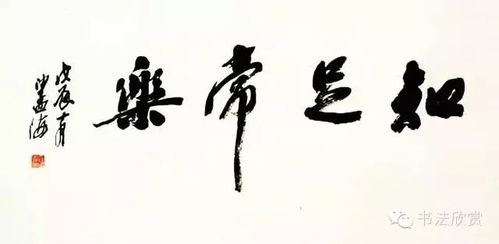 知足常樂
戊辰十有
沙孟海
书法欣赏